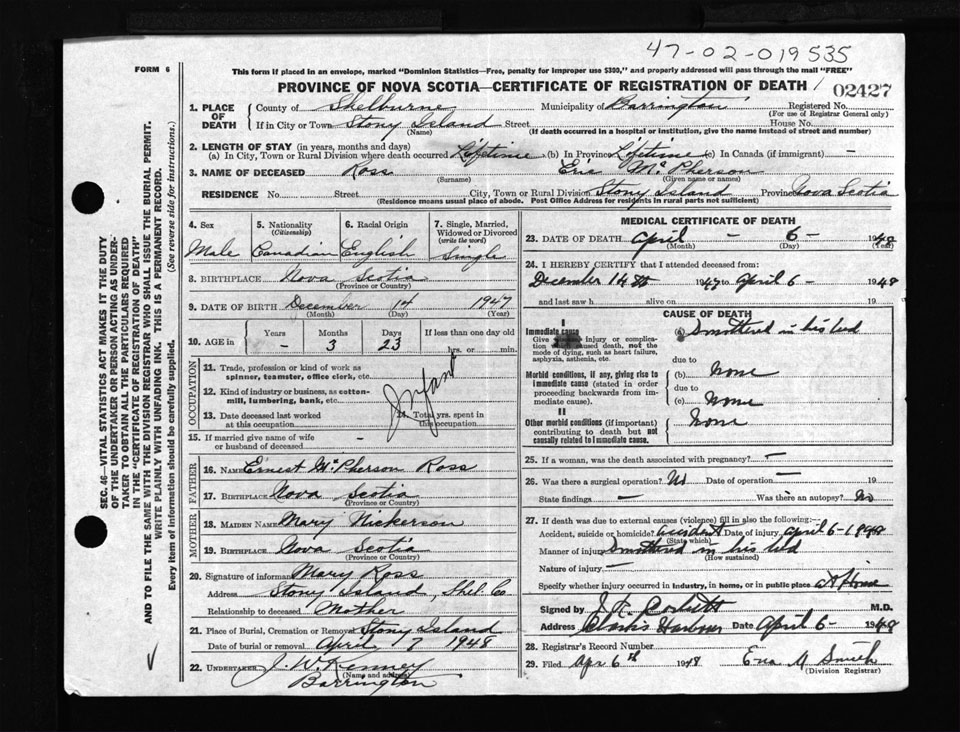 47-02-019535
FORM 6
This form if placed in an envelope, marked "Dominion Statistics—Free, penalty for improper use $300," and properly addressed will pass through the mail "FREE"
PROVINCE OF NOVA SCOTIA—CERTIFICATE OF REGISTRATION OF DEATH / 02427
1. PLACE OF DEATH County of Shelburne Municipality of Barrington Registered No.
(For use of Registrar General only)
If in City or Town Stony Island Street House No.
(Name) (If death occurred in a hospital or institution, give the name instead of street and number)
2. LENGTH OF STAY (in years, months and days)
(a) In City, Town or Rural Division where death occurred Lifetime (b) In Province Lifetime (c) In Canada (if immigrant) —
3. NAME OF DECEASED Ross Eric McPherson
(Surname) (Given name or names)
RESIDENCE No. Street City, Town or Rural Division Stony Island Province Nova Scotia
(Residence means usual place of abode. Post Office Address for residents in rural parts not sufficient)
4. Sex 5. Nationality (Citizenship) 6. Racial Origin 7. Single, Married, Widowed or Divorced (write the word)
Male Canadian English Single
8. BIRTHPLACE Nova Scotia
(Province or Country)
9. DATE OF BIRTH December 14 1947
(Month) (Day) (Year)
10. AGE in Years Months Days If less than one day old
– 3 23 hrs. or min.
OCCUPATION
11. Trade, profession or kind of work as spinner, teamster, office clerk, etc.
12. Kind of industry or business, as cotton-mill, lumbering, bank, etc.
Infant
13. Date deceased last worked at this occupation 14. Total yrs. spent in this occupation
15. If married give name of wife or husband of deceased –
FATHER
16. NAME Ernest McPherson Ross
17. Birthplace Nova Scotia
(Province or Country)
MOTHER
18. MAIDEN NAME Mary Nickerson
19. Birthplace Nova Scotia
(Province or Country)
20. Signature of informant Mary Ross
Address Stony Island, Shel. Co
Relationship to deceased Mother
21. Place of Burial, Cremation or Removal Stony Island
Date of burial or removal April 7 1948
22. UNDERTAKER J. W. Kenney
(Name and address)
Barrington
MEDICAL CERTIFICATE OF DEATH
23. DATE OF DEATH April – 6 – 1948
(Month) (Day)
24. I HEREBY CERTIFY that I attended deceased from:
December 14th 1947 to April 6 – 1948
and last saw h alive on 19
CAUSE OF DEATH
I
Immediate cause (a) Smothered in his bed
Give injury or complication caused death, not the mode of dying, such as heart failure, asphyxia, asthenia, etc.
due to
Morbid conditions, if any, giving rise to immediate cause (stated in order proceeding backwards from immediate cause).
(b) None
due to
(c) None
II
Other morbid conditions (if important) contributing to death but not causally related to immediate cause. None
25. If a woman, was the death associated with pregnancy? –
26. Was there a surgical operation? No Date of operation – 19
State findings – Was there an autopsy? No
27. If death was due to external causes (violence) fill in also the following:—
Accident, suicide or homicide? accident Date of injury April 6 – 1948
(State which)
Manner of injury Smothered in his bed
(How sustained)
Nature of injury –
Specify whether injury occurred in industry, in home, or in public place At Home
Signed by M.D.
Address Clark's Harbour Date April 6 – 1948
28. Registrar's Record Number
29. Filed Apr 6th 1948 Ena M Smith
(Division Registrar)
SEC. 46—VITAL STATISTICS ACT MAKES IT THE DUTY OF THE UNDERTAKER OR PERSON ACTING AS UNDERTAKER TO OBTAIN ALL THE PARTICULARS REQUIRED IN THE "CERTIFICATE OF REGISTRATION OF DEATH" AND TO FILE THE SAME WITH THE DIVISION REGISTRAR WHO SHALL ISSUE THE BURIAL PERMIT.
WRITE PLAINLY WITH UNFADING INK. THIS IS A PERMANENT RECORD.
Every item of information should be carefully supplied. (See reverse side for instructions.)